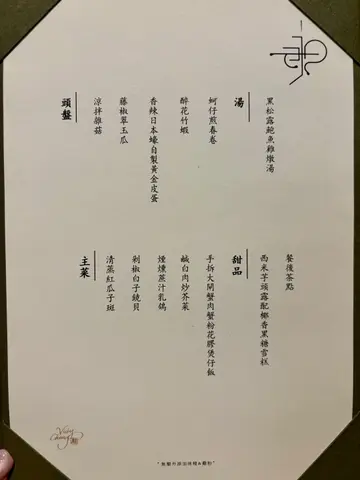 頭盤
涼拌雜菇
藤椒翠玉瓜
香辣日本蠔自製黃金皮蛋
醉花竹蝦
蚵仔煎春卷
湯
黑松露鮑魚雞燉湯
主菜
清蒸紅瓜子斑
剁椒白子鏡貝
煙燻蔗汁乳鴿
鹹白肉炒芥菜
手拆大閘蟹肉蟹粉花膠煲仔飯
甜品
西米芋頭露配椰香黑糖雪糕
餐後茶點
Vicky Cheng